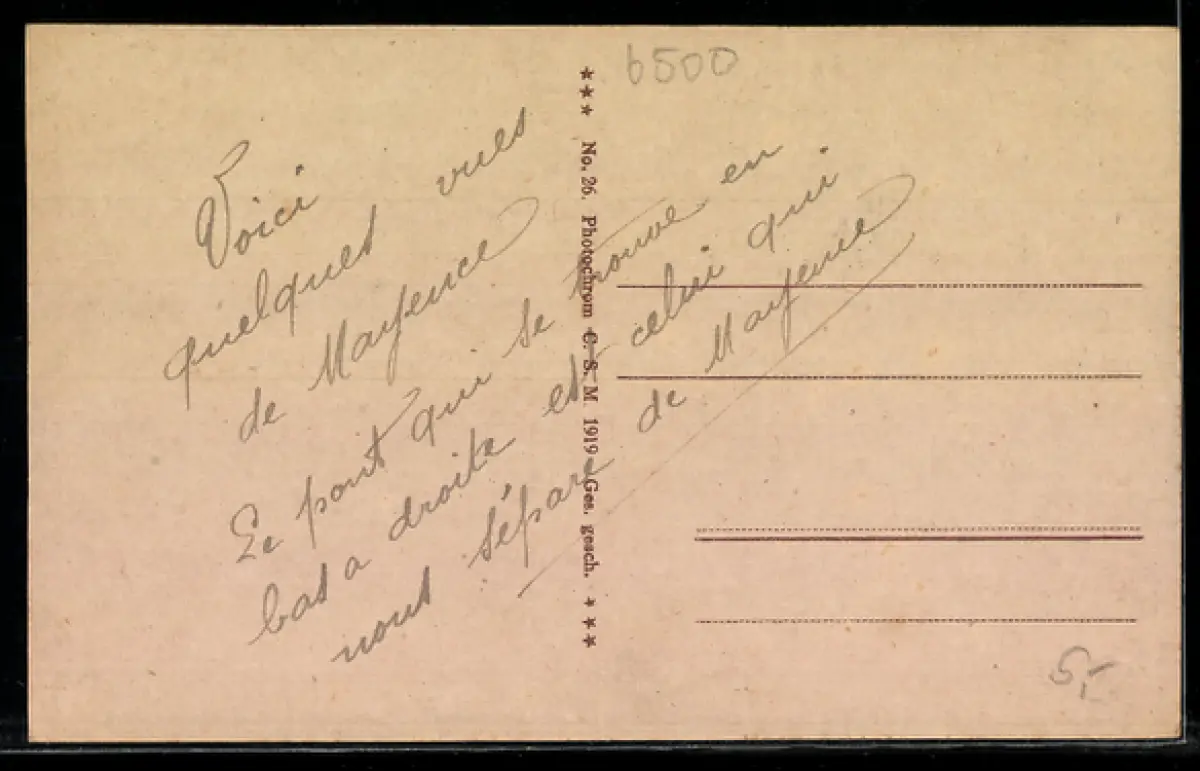 6500
Voici
quelques vues
de Mayence
Le pont qui se trouve en
bas a droite est celui qui
nous sépare de Mayence
*** No. 26. Photochrom C. S. M. 1919 Ges. gesch. ***
5,-